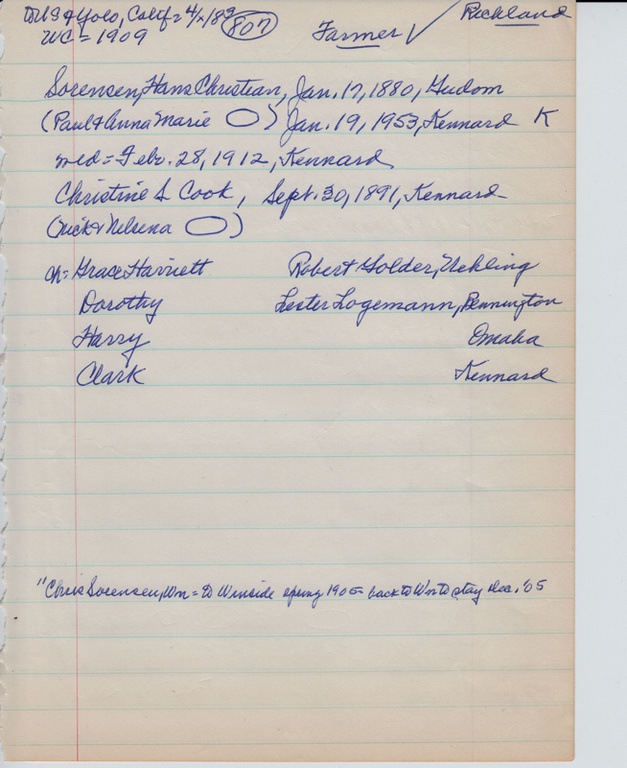 Richland
to US & Yolo, Calif = 4/ /189 807 Farmer ✓
WC = 1909
Sorensen, Hans Christian, Jan. 17, 1880, Gudom
(Paul & Anna Marie ) Jan. 19, 1953, Kennard K
md = Febr. 28, 1912, Kennard
Christine S. Cook, Sept. 30, 1891, Kennard
(Nick & Nelsena )
ch = Grace Harriett Robert Golder, Uehling
Dorothy Lester Logemann, Bennington
Harry Omaha
Clark Kennard
"Chris Sorensen, Wn = to Winside spring 1905 = back to Wn to stay Dec. '05